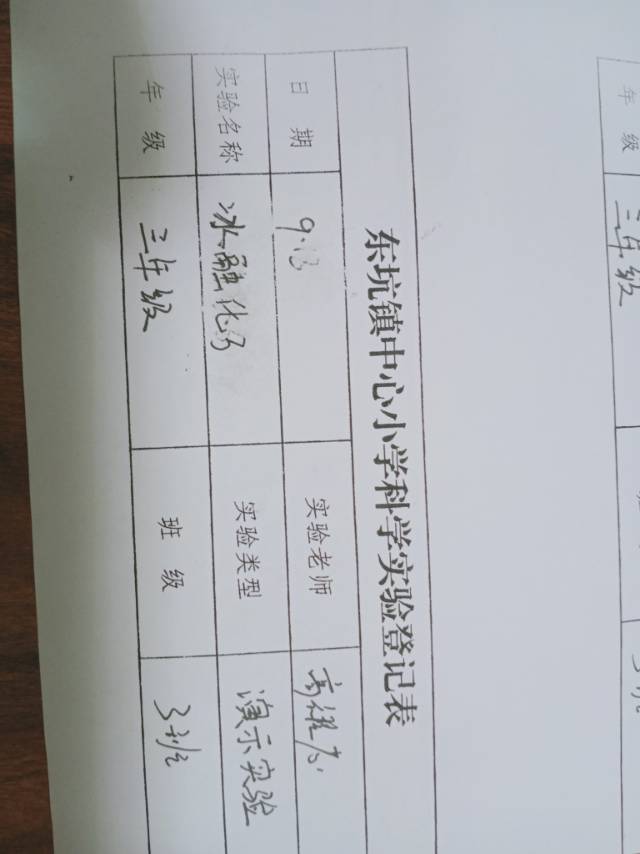 东坑镇中心小学科学实验登记表
日 期 9.13 实验老师
实验名称 冰融化了 实验类型 演示实验
年 级 三年级 班 级 3班
年 级 三年级